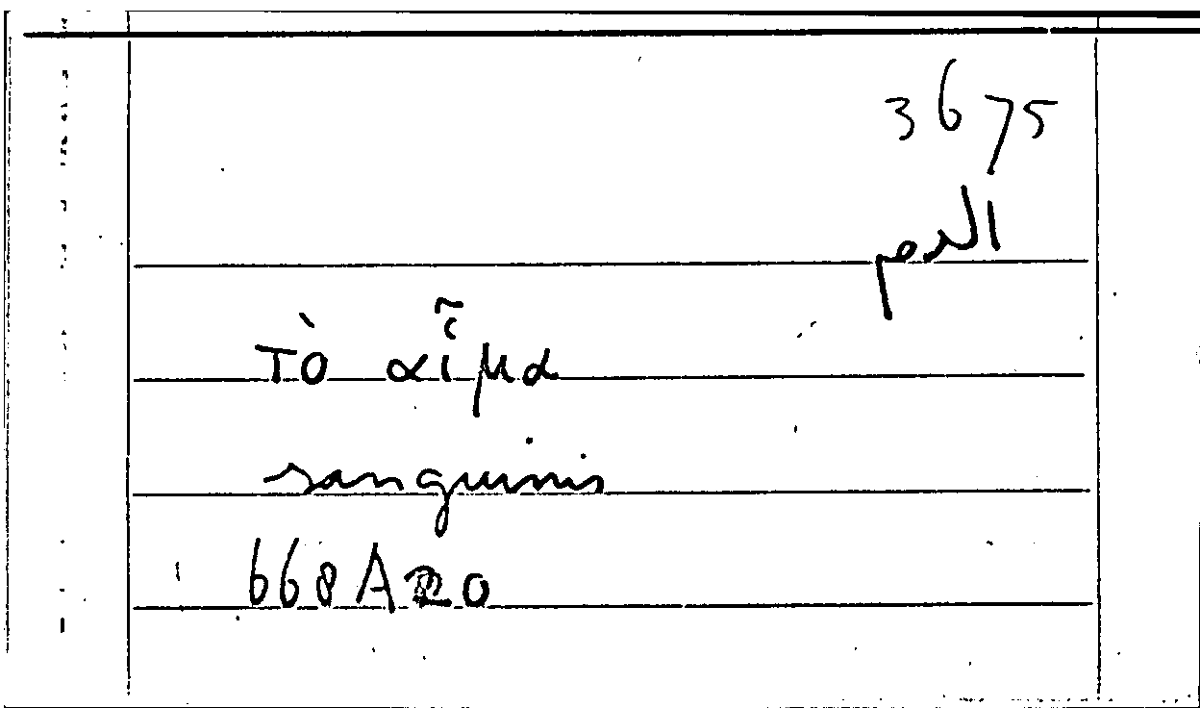 3675
الدم
τὸ αἷμα
sanguinis
668A20